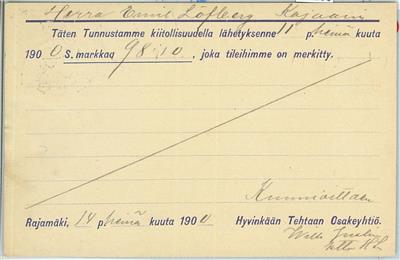 Herra Emil Löfberg Kajaani
Täten Tunnustamme kiitollisuudella lähetyksenne 11 p. heinä kuuta
1900 S. markkaa 98:10, joka tileihimme on merkitty.
Kunnioittaen
Rajamäki, 14 p. heinä kuuta 1900 Hyvinkään Tehtaan Osakeyhtiö.